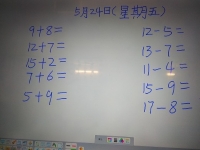 5月24日(星期五)
9+8=
12+7=
15+2=
7+6=
5+9=
12-5=
13-7=
11-4=
15-9=
17-8=